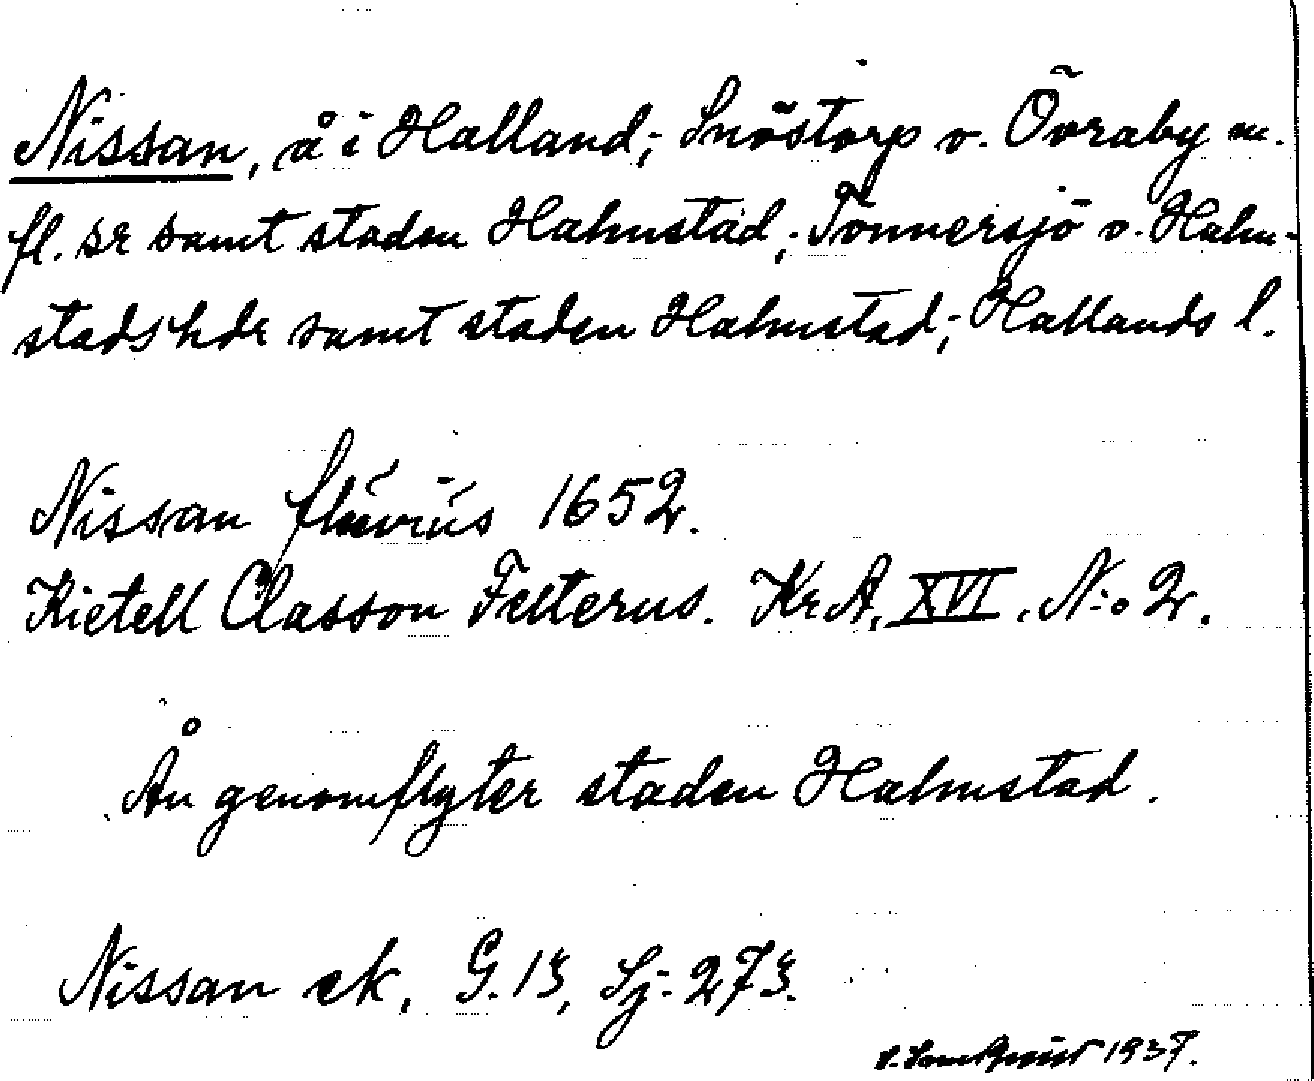 Nissan, å i Halland; Snöstorp o. Övraby m.
fl. sr samt staden Halmstad; Tönnersjö o. Halm-
stads hdr samt staden Halmstad; Hallands l.
Nissan fluvius 1652.
Kietell Classon Felterus. Kr.A. XVI. N:o 2.
Ån genomflyter staden Halmstad.
Nissan ek. G. 13, Sj. 273.
1937.